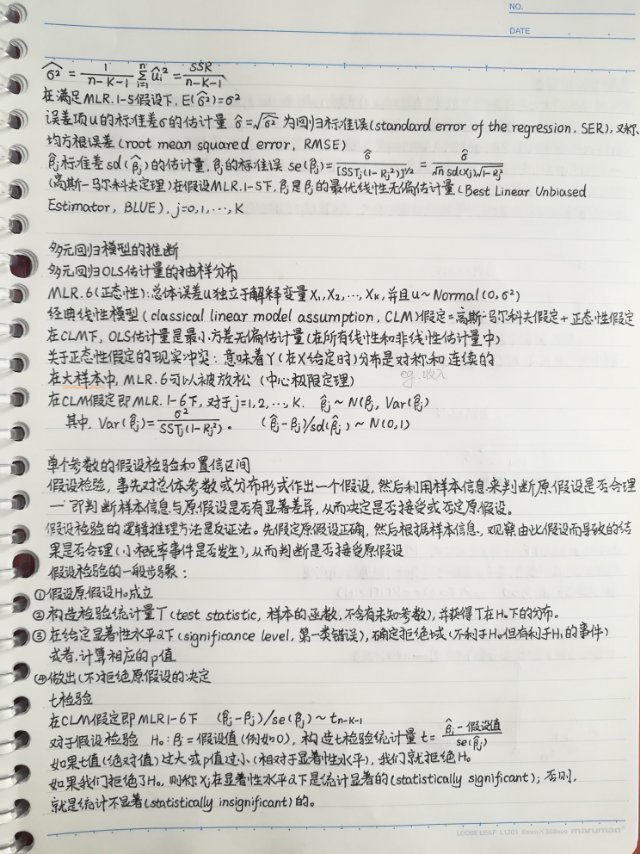 NO.
DATE
σ̂² = 1/(n-K-1) Σᵢ₌₁ⁿ ûᵢ² = SSR/(n-K-1)
在满足MLR.1-5假设下, E(σ̂²)=σ²
误差项u的标准差σ的估计量 σ̂=√σ̂² 为回归标准误(standard error of the regression, SER), 又称
均方根误差(root mean squared error, RMSE)
β̂ⱼ标准差sd(β̂ⱼ)的估计量, β̂ⱼ的标准误 se(β̂ⱼ)= σ̂/[SSTⱼ(1-Rⱼ²)]^(1/2) = σ̂/(√n sd(xⱼ)√(1-Rⱼ²))
(高斯-马尔科夫定理)在假设MLR.1-5下, β̂ⱼ是βⱼ的最优线性无偏估计量(Best Linear Unbiased
Estimator, BLUE), j=0,1,…,K
多元回归模型的推断
多元回归OLS估计量的抽样分布
MLR.6(正态性):总体误差u独立于解释变量X₁,X₂,…,Xₖ, 并且u~Normal(0,σ²)
经典线性模型(classical linear model assumption, CLM)假定=高斯-马尔科夫假定+正态性假定
在CLM下, OLS估计量是最小方差无偏估计量(在所有线性和非线性估计量中)
关于正态性假定的现实冲突: 意味着Y(在X给定时)分布是对称和连续的
eg.收入
在大样本中, MLR.6可以被放松(中心极限定理)
在CLM假定即MLR.1-6下, 对于j=1,2,…,K. β̂ⱼ ~ N(βⱼ, Var(β̂ⱼ)
其中, Var(β̂ⱼ)= σ²/SSTⱼ(1-Rⱼ²)。 (β̂ⱼ-βⱼ)/sd(β̂ⱼ) ~ N(0,1)
单个参数的假设检验和置信区间
假设检验, 事先对总体参数或分布形式作出一个假设, 然后利用样本信息来判断原假设是否合理
一即判断样本信息与原假设是否有显著差异, 从而决定是否接受或否定原假设。
假设检验的逻辑推理方法是反证法。先假定原假设正确, 然后根据样本信息, 观察由此假设而导致的结
果是否合理(小概率事件是否发生), 从而判断是否接受原假设
假设检验的一般步骤:
①假设原假设H₀成立
②构造检验统计量T(test statistic, 样本的函数, 不含有未知参数), 并获得T在H₀下的分布。
③在给定显著性水平α下(significance level, 第一类错误), 确定拒绝域(不利于H₀但有利于H₁的事件)
或者, 计算相应的p值
④做出(不)拒绝原假设的决定
t检验
在CLM假定即MLR1-6下 (β̂ⱼ-βⱼ)/se(β̂ⱼ) ~ tₙ₋ₖ₋₁
对于假设检验 H₀: βⱼ=假设值(例如0), 构造t检验统计量 t= (β̂ⱼ-假设值)/se(β̂ⱼ)
如果t值(绝对值)过大或p值过小(相对于显著性水平), 我们就拒绝H₀
如果我们拒绝了H₀, 则称xⱼ在显著性水平α下是统计显著的(statistically significant); 否则,
就是统计不显著(statistically insignificant)的。
LOOSE LEAF L1201 6mm×36lines maruman